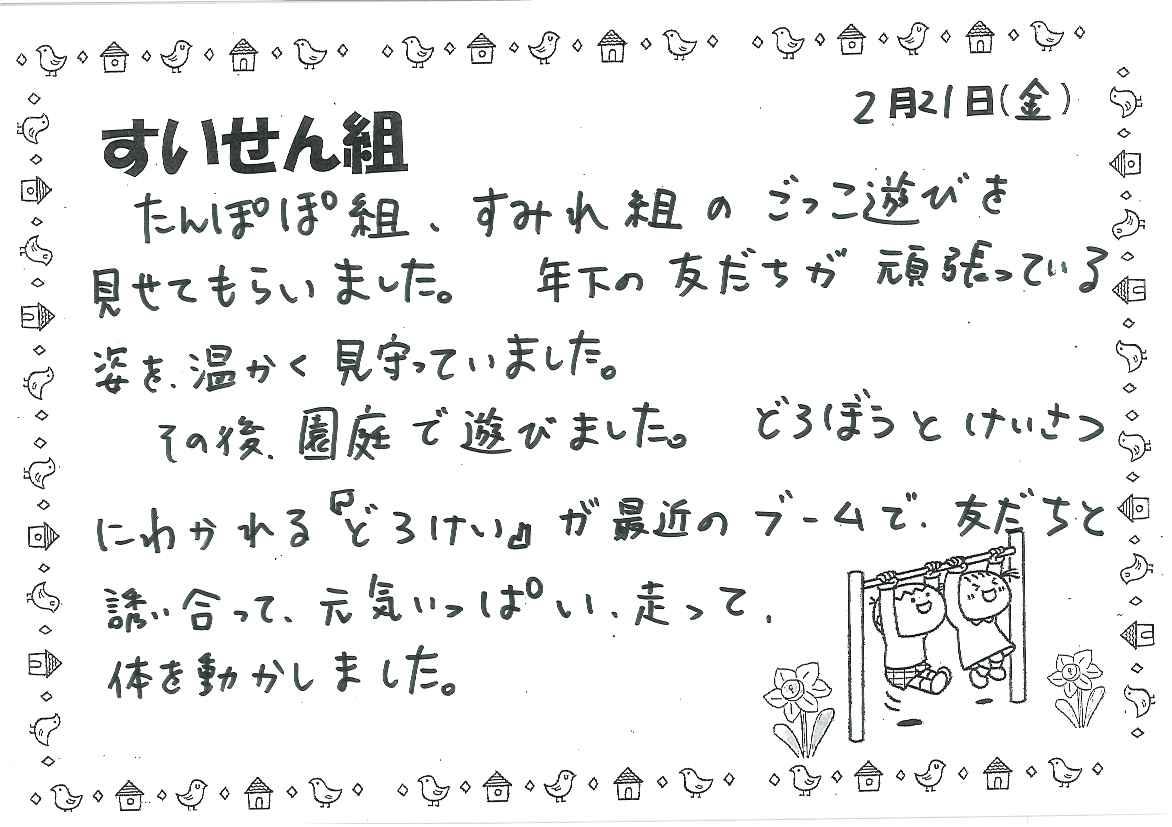 2月21日(金)
すいせん組
たんぽぽ組、すみれ組のごっこ遊びを
見せてもらいました。 年下の友だちが頑張っている
姿を、温かく見守っていました。
その後、園庭で遊びました。 どろぼうとけいさつ
にわかれる『どろけい』が最近のブームで、友だちと
誘い合って、元気いっぱい、走って、
体を動かしました。